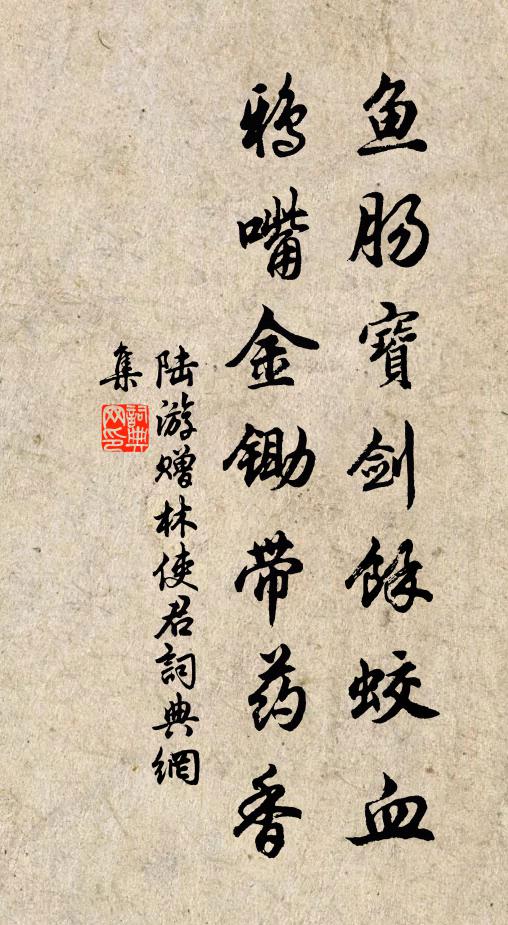 鱼肠寶剑餘蛟血
鴉嘴金锄带药香
陆游赠林使君詞典網
集
詞典
网印